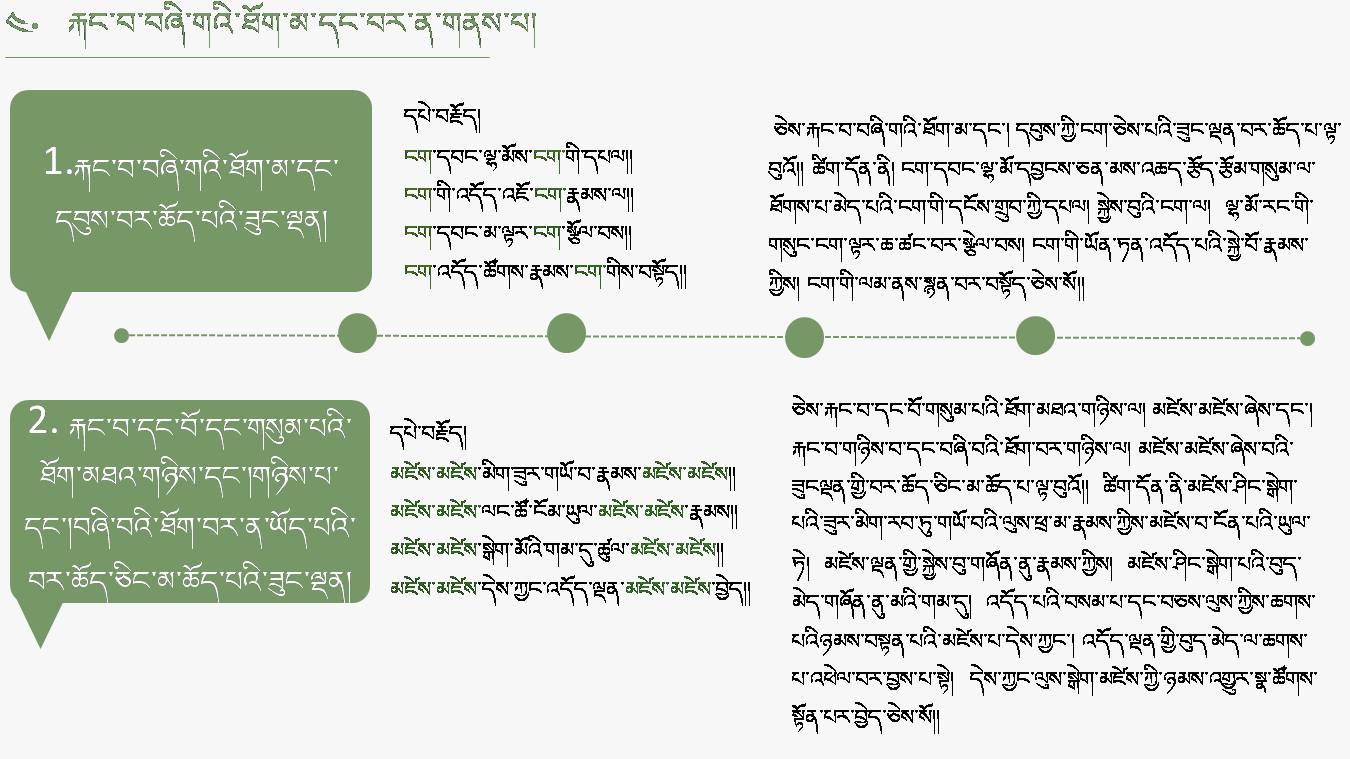 ༤. རྐང་བ་བཞི་གའི་ཐོག་མ་དང་བར་ན་གནས་པ།
1.རྐང་བ་བཞི་གའི་ཐོག་མ་དང་
དབུས་བར་ཆོད་པའི་ཟུང་ལྡན།
དཔེ་བརྗོད།
ངག་དབང་ལྷ་མོས་ངག་གི་དཔལ།།
ངག་གི་འདོད་འཇོ་ངག་རྣམས་ལ།།
ངག་དབང་མ་ལྟར་ངག་སྩོལ་བས།།
ངག་འདོད་ཚོགས་རྣམས་ངག་གིས་བསྟོད།།
ཅེས་རྐང་བ་བཞི་གའི་ཐོག་མ་དང་། དབུས་ཀྱི་ངག་ཅེས་པའི་ཟུང་ལྡན་བར་ཆོད་པ་ལྟ་
བུའོ།། ཚིག་དོན་ནི། ངག་དབང་ལྷ་མོ་དབྱངས་ཅན་མས་འཆད་རྩོད་རྩོམ་གསུམ་ལ་
ཐོགས་པ་མེད་པའི་ངག་གི་དངོས་གྲུབ་ཀྱི་དཔལ། སྐྱེས་བུའི་ངག་ལ། ལྷ་མོ་རང་གི་
གསུང་ངག་ལྟར་ཆ་ཚང་བར་སྩེལ་བས། ངག་གི་ཡོན་ཏན་འདོད་པའི་སྐྱེ་བོ་རྣམས་
ཀྱིས། ངག་གི་ལམ་ནས་སྙན་བར་བསྟོད་ཅེས་སོ།།
2. རྐང་བ་དང་བོ་དང་གསུམ་པའི་
ཐོག་མཐའ་གཉིས་དང་།གཉིས་པ་
དང་།བཞི་བའི་ཐོག་བར་ན་ཡོད་པའི་
བར་ཆོད་ཅིང་མ་ཆོད་པའི་ཟུང་ལྡན།
དཔེ་བརྗོད།
མཛེས་མཛེས་མིག་ཟུར་གཡོ་བ་རྣམས་མཛེས་མཛེས།།
མཛེས་མཛེས་ལང་ཚོ་ངོམ་ཡུལ་མཛེས་མཛེས་རྣམས།།
མཛེས་མཛེས་སྒེག་མོའི་གམ་དུ་ཚུལ་མཛེས་མཛེས།།
མཛེས་མཛེས་དེས་ཀྱང་འདོད་ལྡན་མཛེས་མཛེས་བྱེད།།
ཅེས་རྐང་བ་དང་བོ་གསུམ་པའི་ཐོག་མཐའ་གཉིས་ལ། མཛེས་མཛེས་ཞེས་དང་།
རྐང་བ་གཉིས་བ་དང་བཞི་བའི་ཐོག་བར་གཉིས་ལ། མཛེས་མཛེས་ཞེས་བའི་
ཟུངལྡན་གྱི་བར་ཆོད་ཅིང་མ་ཆོད་པ་ལྟ་བུའོ།། ཚིག་དོན་ནི་མཛེས་ཤིང་སྒེག་
པའི་ཟུར་མིག་རབ་ཏུ་གཡོ་བའི་ལུས་ཕྲ་མ་རྣམས་ཀྱིས་མཛེས་བ་ངོན་པའི་ཡུལ་
ཏེ། མཛེས་ལྡན་གྱི་སྐྱེས་བུ་གཞོན་ནུ་རྣམས་ཀྱིས། མཛེས་ཤིང་སྒེག་པའི་བུད་
མེད་གཞོན་ནུ་མའི་གམ་དུ། འདོད་པའི་བསམ་པ་དང་བཅས་ལུས་ཀྱིས་ཆགས་
པའིཉམས་བསྟན་པའི་མཛེས་པ་དེས་ཀྱང་། འདོད་ལྡན་གྱི་བུད་མེད་ལ་ཆགས་
པ་འཕེལ་བར་བྱས་པ་སྟེ། དེས་ཀྱང་ལུས་སྒེག་མཛེས་ཀྱི་ཉམས་འགྱུར་སྣ་ཚོགས་
སྟོན་པར་བྱེད་ཅེས་སོ།།